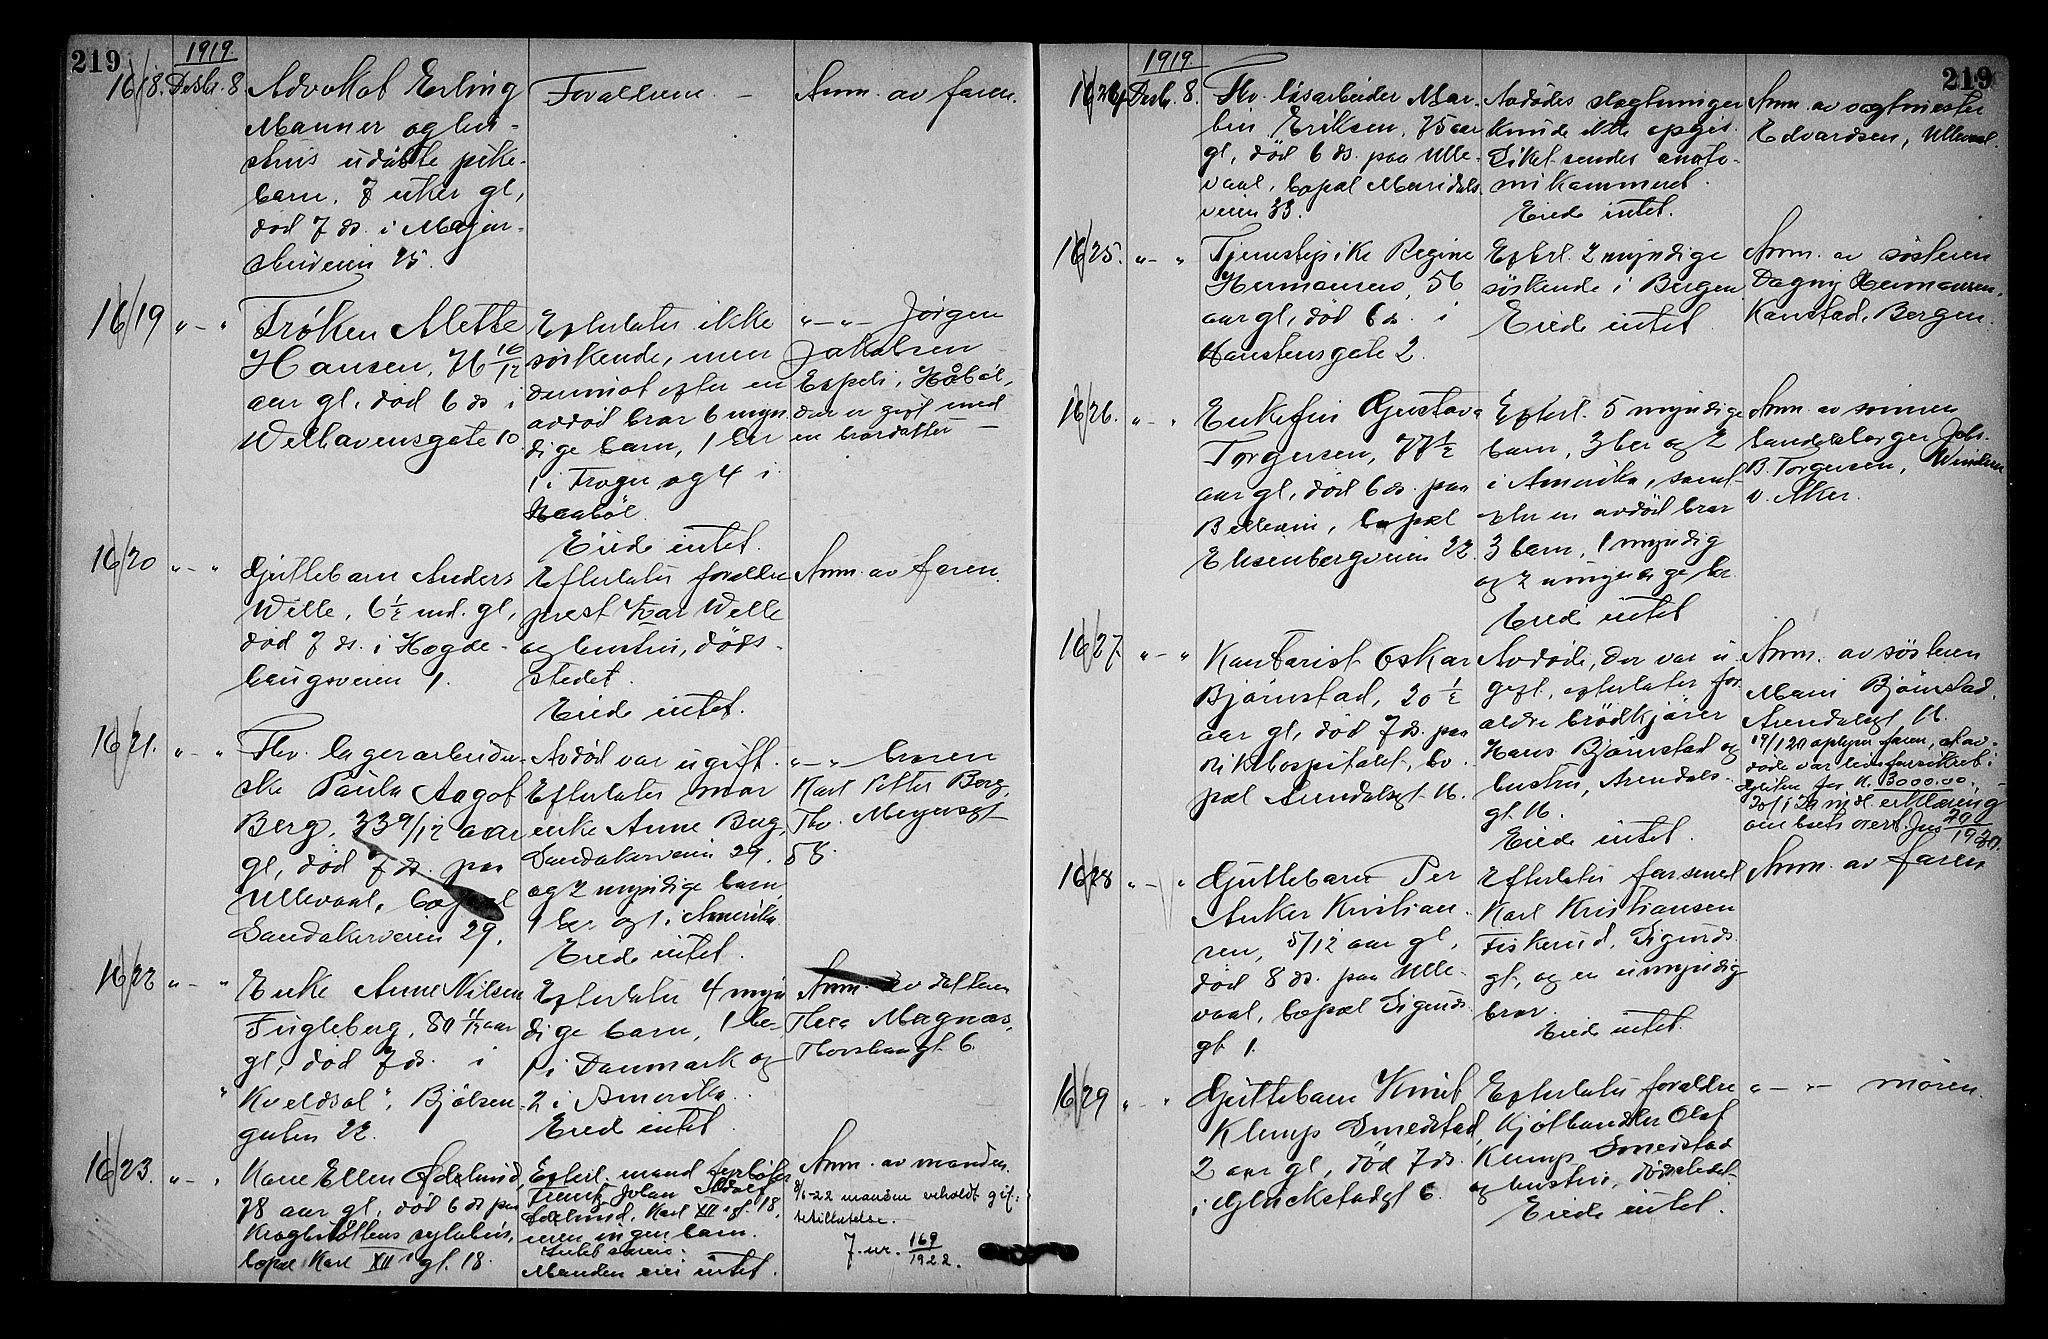 219
1919.
1618. Desbr. 8
Advokat Erling
Manner og hu-
strus udøbte pike-
barn, 7 uker gl.,
död 7 ds. i Major-
stuveien 25.
Forældrene. —
Anm. av faren.
1619 " — "
Frøken Mette
Hansen, 76 10/12
aar gl. död 6 ds i
Welhavensgate 10
Efterlater ikke
söskende, men
derimot efter en
avdöd bror 6 myn-
dige barn, 1 her
1 i Frogn og 4 i
Haaböl.
Eiede intet.
" — " — Jörgen
Jakobsen
Espeli, Håböl,
der er gift med
en brordatter —
1620 " — "
Guttebarn Anders
Welle, 6 1/2 md. gl.,
död 7 ds. i Hegde-
haugsveien 1.
Efterlater forældre
prest Ivar Welle
og hustru, döds-
stedet.
Eiede intet.
Anm. av faren.
1621. " — "
Fhv. lagerarbeider-
ske Paula Aagot
Berg, 33 9/12 aar
gl., död 7 ds. paa
Ullevaal, bopæl
Sandakerveien 29.
Avdöd var ugift.
Efterlater mor
enke Anne Berg,
Sandakerveien 29.
og 2 myndige barn
1 her og 1 i Amerika
Eiede intet.
" — " broren
Karl Petter Berg,
Thv. Meyersgt
58.
1622 " — "
Enke Anne Nilsen
Fugleberg, 80 11/12 aar
gl., död 7 ds. i
"Kveldsol", Bjölsen-
gaten 22.
Efterlater 4 myn
dige barn, 1 her
1 i Danmark og
2 i Amerika.
Eied intet.
Anm. av datteren
Thea Magnæs,
Thorshaugt. 6.
1623. " — "
Kone Ellen Ödelund,
78 aar gl., död 6 ds paa
Krogstöttens sykehus,
bopæl Karl XII's gt. 18.
Efterl. mand fyrböter
Johan
Ödelund, Karl XII's gt. 18,
men ingen barn.
Manden eier intet.
Anm. av manden.
8/6-22 manden veholdt gif-
tetillatelse.
7. nr. 169/1922.
219
1919.
1624 Desb. 8.
Fhv. lösarbeider Mar-
ben Eriksen, 75 aar
gl., död 6 ds. paa Ulle-
vaal, bopæl Maridals-
veien 33.
Avdödes slegtninger
kunde ikke opgis.
Liket sendes anato-
mikammeret.
Eiede intet.
Anm. av vagtmester
Edvardsen, Ullevaal.
1625. " — "
Tjenestepike Regine
Hermansen, 56
aar gl., död 6 ds. i
Hanstensgate 2.
Efterl. 2 myndige
söskende i Bergen
Eiede intet.
Anm. av sösteren
Dagny Hermansen,
Kanstad, Bergen.
1626. " — "
Enkefru Gustava
Torgersen, 77 1/2
aar gl., död 6 ds. paa
bopæl
Elisenbergveien 22.
Efterl. 5 myndige
barn, 3 her og 2
i Amerika, samt
efter en avdöd bror
3 barn, 1 myndig
og 2 umyndige her.
Eied intet
Anm. av sönnen
handelsborger Joh.
B. Torgersen, Vinderen
v. Aker.
1627. " — "
Kontorist Oskar
Björnstad, 20 1/2
aar gl., död 7 ds. paa
Rikshospitalet, bo-
pæl Arendalsgt. 16.
Avdöde, der var u-
gift, efterlater for-
ældre brödkjörer
Hans Björnstad og
hustru, Arendals-
gt. 16.
Eiede intet.
Anm. av sösteren
Marie Björnstad,
Arendalsgt. 16.
19/1 20 oplyser faren, at av-
döde var livsforsikret i
for K. 3000.00.
20/1 20 mdl. erklæring
om boets overt. Jnr 20/1920.
1628 " — "
Guttebarn Per
Anker Kristian-
sen, 5/12 aar gl.,
död 8 ds. paa Ulle-
vaal, bopæl Sigurds-
gt. 1.
Efterlater far smed
Karl Kristiansen
Fiskerud, Sigurds-
gt., og en umyndig
bror.
Eiede intet.
Anm. av faren
1629 " — "
Guttebarn Knut
Klemp Smedstad,
2 aar gl., död 7 ds.
i Glückstadgt 6.
Efterlater forældre
Kjöthandler Olaf
Klemp Smedstad
og hustru, dödsstedet.
Eiede intet.
" — " — moren.